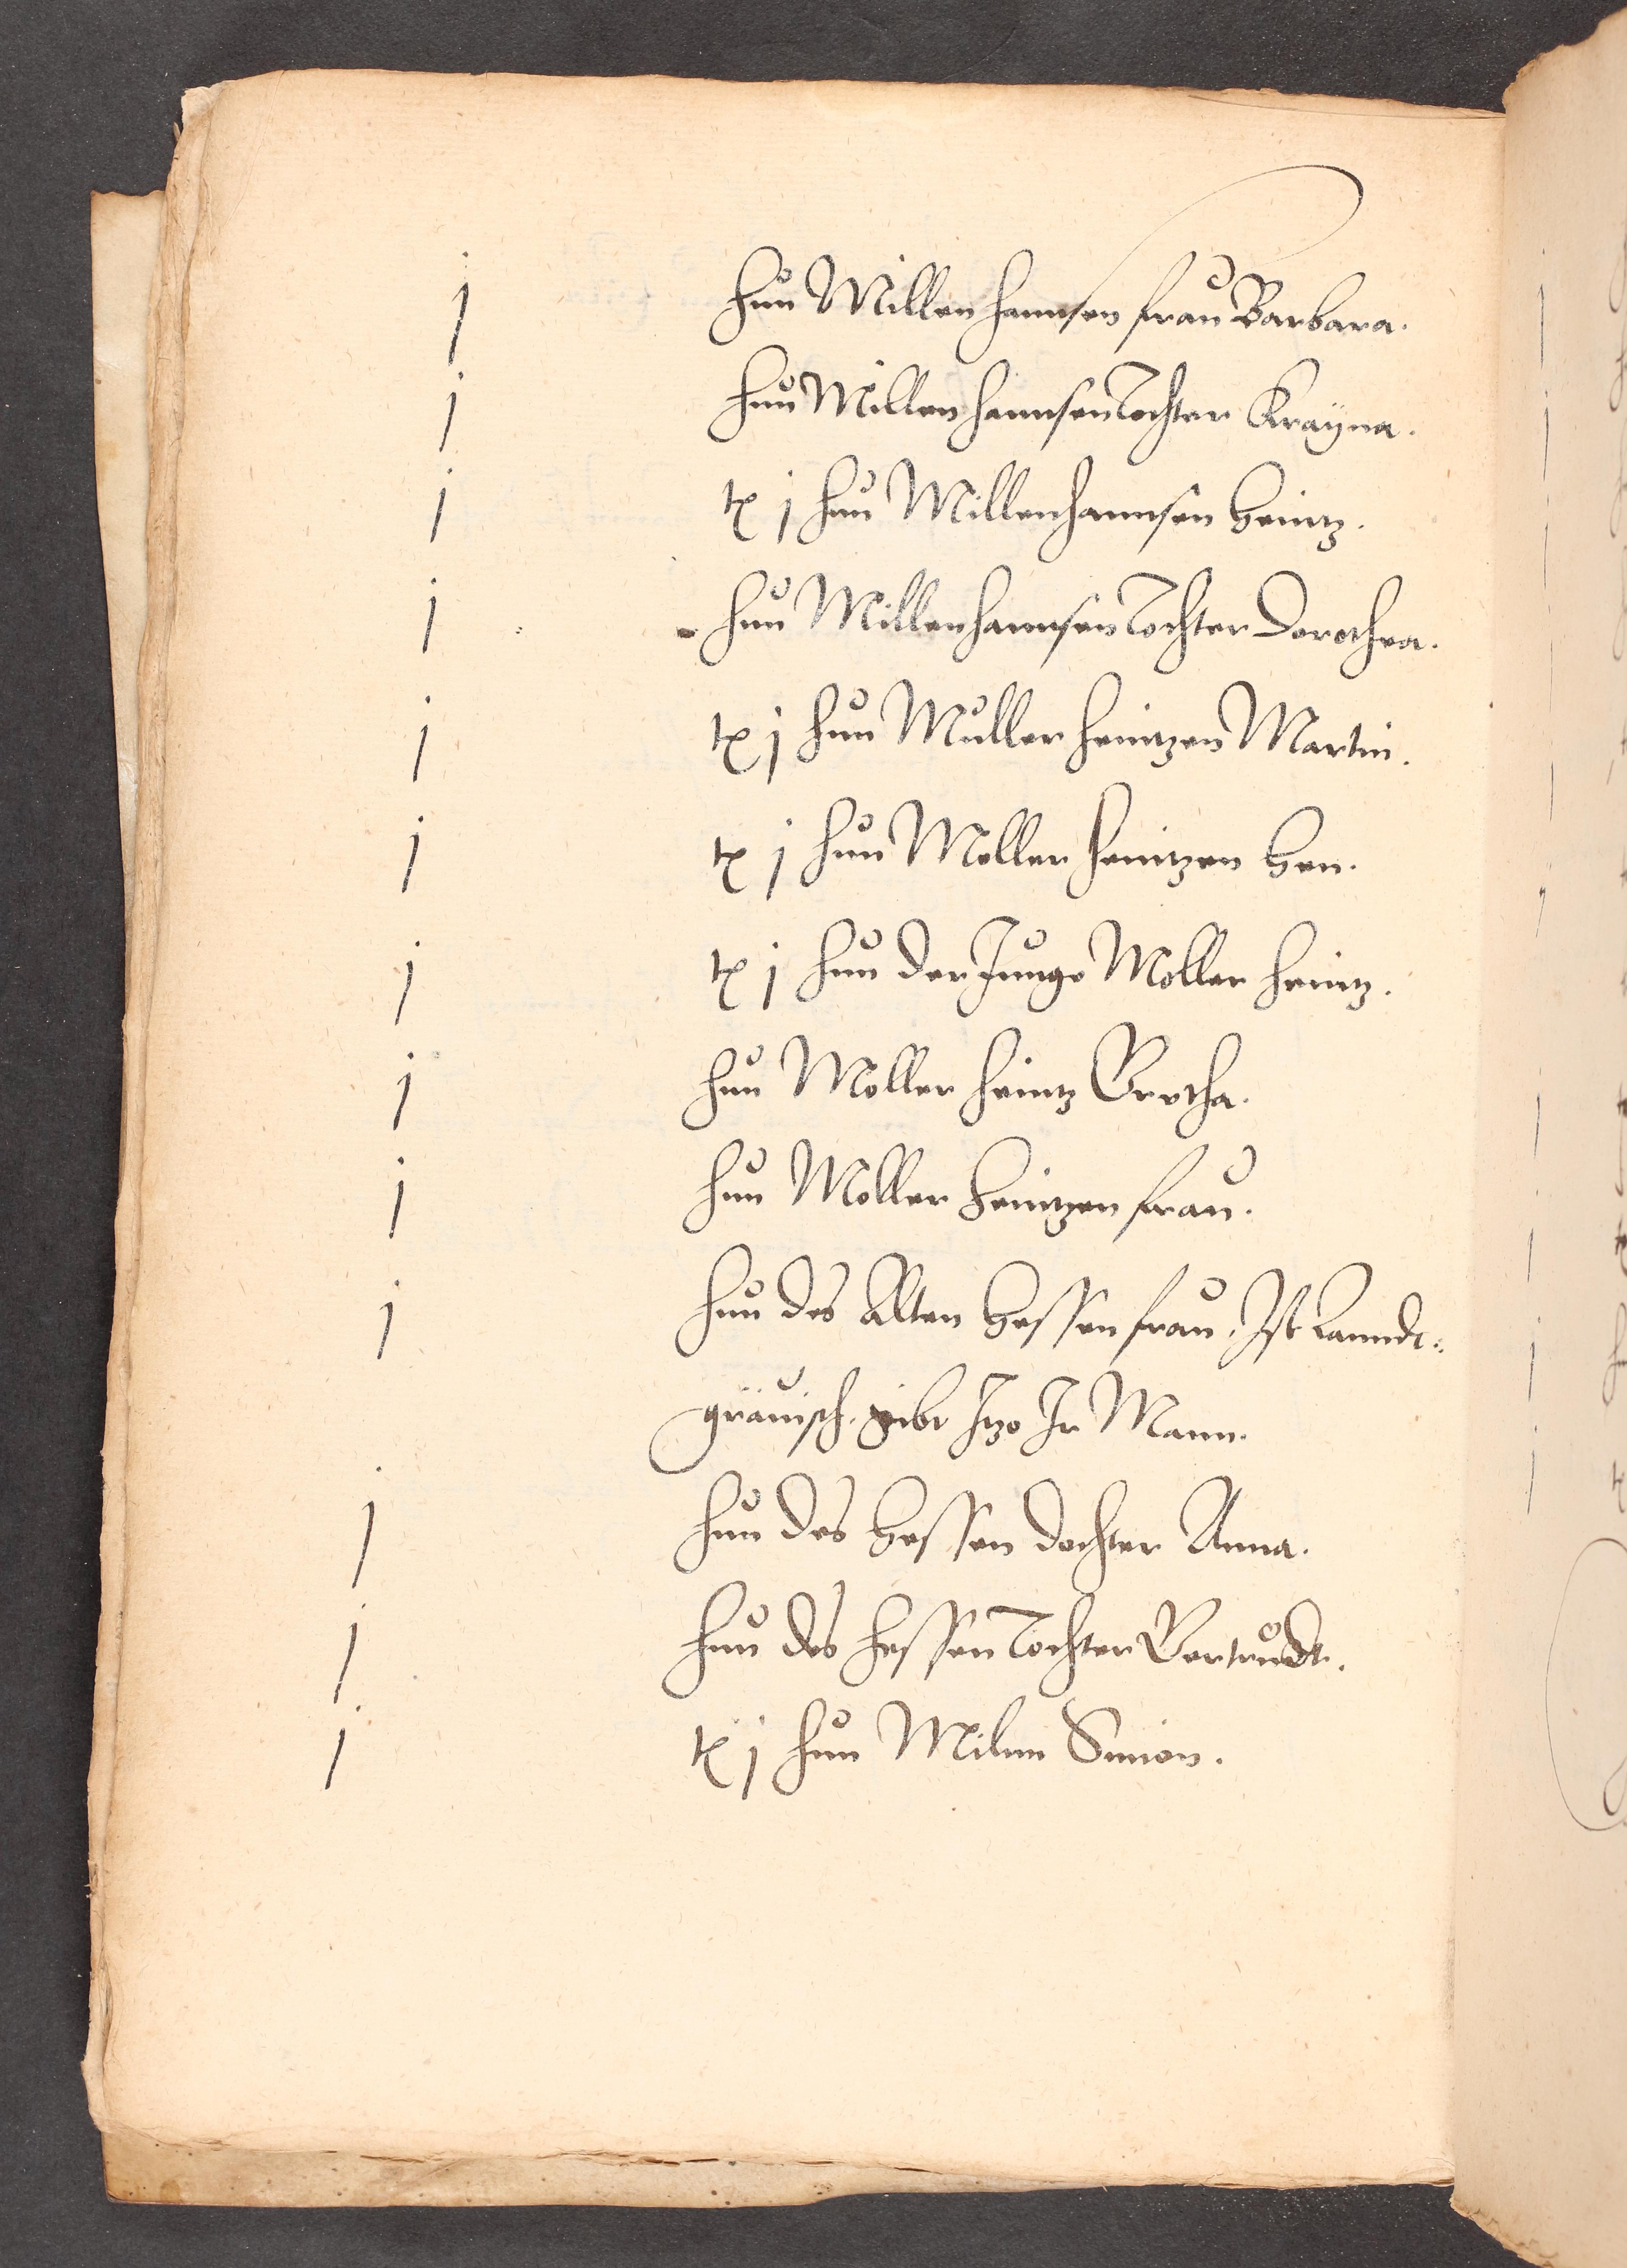 j hun Millen hannsen frau Barbara.
j hun Millen hannsen Tochter Krayna.
j tx j hun Millenhannsen Heintz.
j hun Millenhannsen Tochter Dorothea.
j tx j hun Muller heintzen Martin.
j tx j hun Moller heintzen Hen.
j tx j hun der Junge Moller heintz.
j hun Moller heintz Gretha.
j hun Moller Heintzen frau.
j hun des Alten Hessen frau, Ist Lanndt-
gräuisch. gibt Itzo Ir Mann.
j hun des Hessen dochter Anna.
j hun des hessen Tochter Gertrudt.
j tx j hun Milnn Simon.